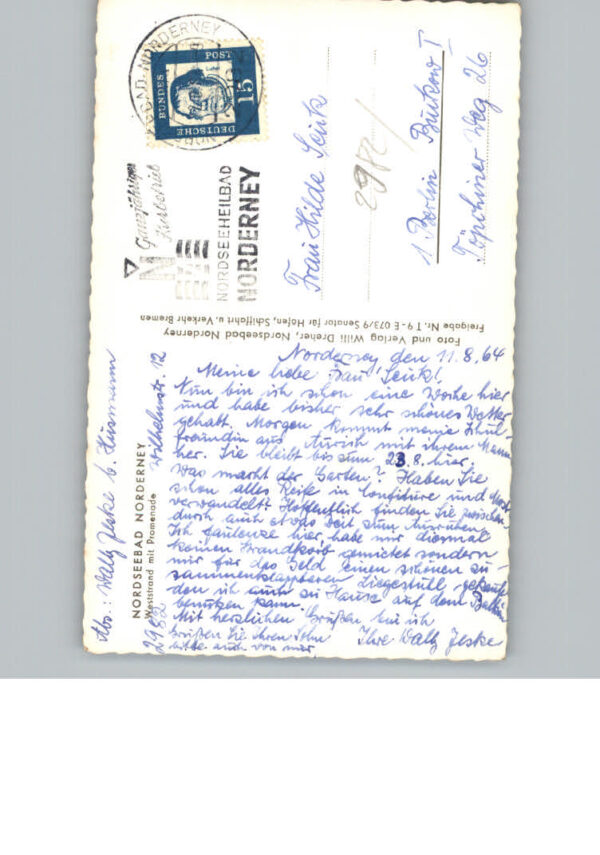 Norderney den 11.8.64
Meine liebe Frau Senk!
Nun bin ich schon eine Woche hier
und habe bisher sehr schönes Wetter
gehabt. Morgen kommt meine Schul-
freundin aus Aurich mit ihrem Mann
her. Sie bleibt bis zum 23.8. hier.
Was macht der Garten? Haben Sie
schon alles Reife in Confitüre und Most
verwandelt? Hoffentlich finden Sie zwischen-
durch auch etwas Zeit zum Ausruhen.
Ich faulenze hier, habe mir diesmal
keinen Strandkorb gemietet sondern
mir für das Geld einen schönen zu-
sammenklappbaren Liegestuhl gekauft
den ich auch zu Hause auf dem Balkon
benutzen kann.
Mit herzlichen Grüßen bin ich
Ihre Wally Jeske
Grüßen Sie Ihren Sohn
bitte auch von mir
Abs.: Wally Jeske b. Husmann
Wilhelmstr. 12
2982
NORDSEEBAD NORDERNEY
Weststrand mit Promenade
Foto und Verlag Willi Dreher, Nordseebad Norderney
Freigabe Nr. T 9 - E 073/9 Senator für Häfen, Schiffahrt u. Verkehr Bremen
NORDERNEY
DEUTSCHE
BUNDES
POST
15
Ganzjähriger
Kurbetrieb
NORDSEEHEILBAD
NORDERNEY
Frau Hilde Senk
2982/
1 Berlin Buckow I
Töpchiner Weg 26